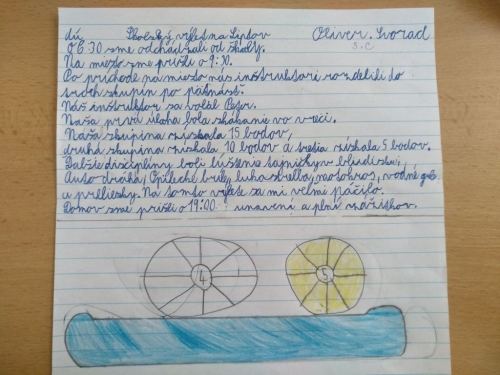 dú Školský výlet na Liptov Oliver Svorad
3.C
O 6:30 sme odchádzali od školy.
Na miesto sme prišli o 9:00.
Po príchode na miesto nás inštruktori rozdelili do
troch skupín po pätnásť.
Náš inštruktor sa volal Peter.
Naša prvá úloha bola skákanie vo vreci.
Naša skupina získala 15 bodov,
druhá skupina získala 10 bodov a tretia získala 5 bodov.
Ďalšie disciplíny boli lúštenie tajničky v bludisku,
Auto dráha, Opileché bicykle, lukostreľba, vodné
a prilliezky. Na tomto výlete sa mi veľmi páčilo.
Domov sme prišli o 19:00 unavení a plní zážitkov.
4
5